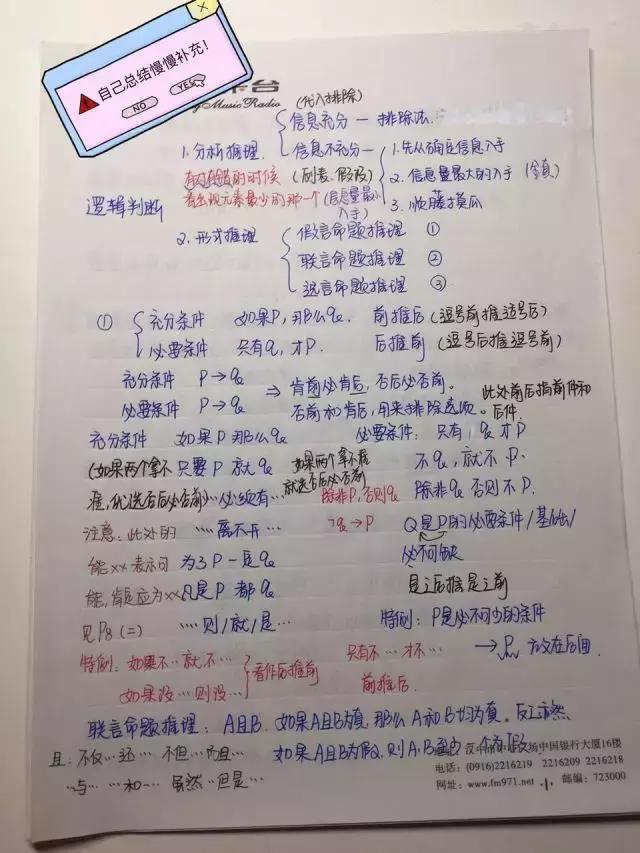 自己总结慢慢补充!
NO YES
Music Radio
(代入排除)
信息充分 — 排除法.
1.分析推理.
信息不充分 —
1.先从确定信息入手
2. 信息量最大的入手 (全真)
3. 顺藤摸瓜
的时候 (列表、假设)
看出现元素最少的那一个 (信息量最大入手)
逻辑判断
2. 形式推理
假言命题推理 ①
联言命题推理 ②
选言命题推理 ③
① 充分条件 如果P,那么q. 前推后 (逗号前推逗号后)
必要条件 只有q,才P. 后推前 (逗号后推逗号前)
充分条件 P→q ⇒ 肯前必肯后,否后必否前. 此处前后指前件和后件.
必要条件 P→q 否前和肯后,用来排除选项.
充分条件 如果P那么q 必要条件: 只有q才P
(如果两个拿不准,优选否后必否前) 只要P就q
如果两个拿不准就选否后必否前
不q,就不P.
…必须有… 除非P,否则q 除非q否则不P.
注意:此处的 …离不开… ¬q→P Q是P的必要条件/基础/
必不可缺
能xx表示可 为了P一定q
能,肯定应为xx 凡是P都q 是之后推是之前
见P8(二) …则/就/是… 特例:P是必不可少的条件
特例:如果不…就不… 看作后推前 只有不…才不… → P放在后面
如果没…则没… 前推后.
联言命题推理: A且B. 如果A且B为真,那么A和B均为真。反之亦然
且: 不仅…还… 不但…而且… 如果A且B为假,则A、B 一个为假
…与… …和… 虽然…但是…
场中国银行大厦16楼
电话:(0916)2216219 2216209 2216218
网址:www.fm971.net 邮编:723000